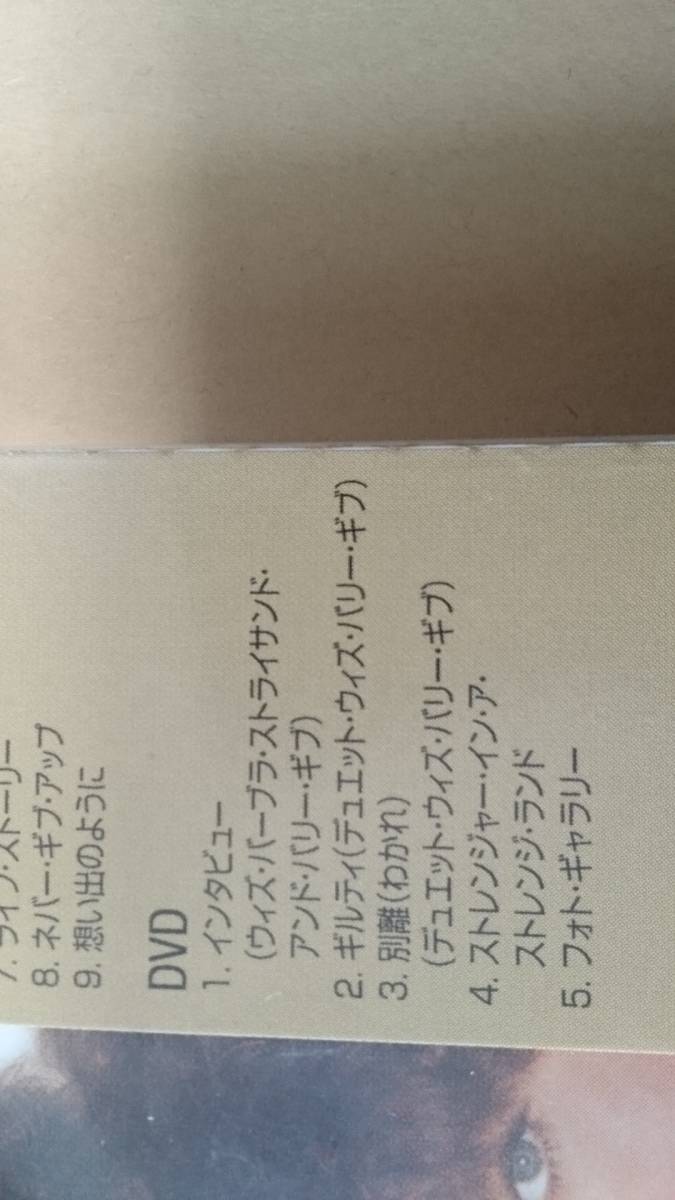 7. ライフ・ストーリー
8. ネバー・ギブ・アップ
9. 想い出のように
DVD
1. インタビュー
(ウィズ・バーブラ・ストライサンド・
アンド・バリー・ギブ)
2. ギルティ(デュエット・ウィズ・バリー・ギブ)
3. 別離(わかれ)
(デュエット・ウィズ・バリー・ギブ)
4. ストレンジャー・イン・ア・
ストレンジ・ランド
5. フォト・ギャラリー